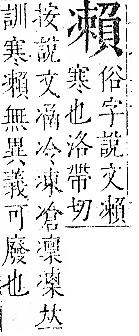 瀨
俗字說文瀨
寒也洛帶切
按說文涵冷凍凔凜凓𠀤
訓寒瀨無異義可廢也